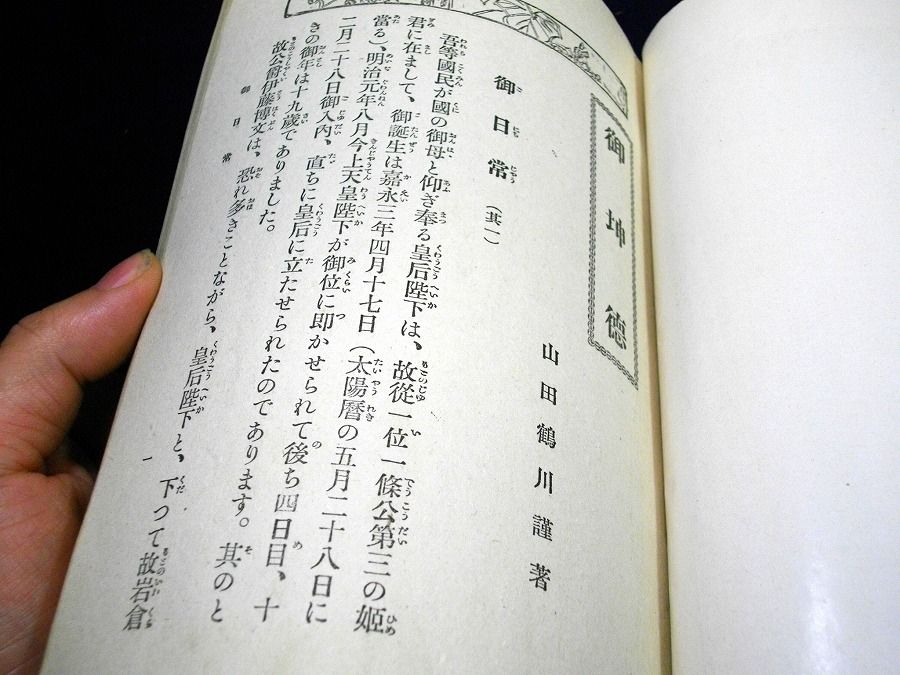 御坤德
山田鶴川謹著
御日常（其一）
吾等國民が國の御母と仰ぎ奉る皇后陛下は、故從一位一條公第三の姬
君に在まして、御誕生は嘉永三年四月十七日（太陽曆の五月二十八日に
當る）、明治元年八月今上天皇陛下が御位に即かせられて後ち四日目、十
二月二十八日御入內、直ちに皇后に立たせられたのであります。其のと
きの御年は十九歲でありました。
故公爵伊藤博文は、恐れ多きことながら、皇后陛下と、下つて故岩倉
御日常
一